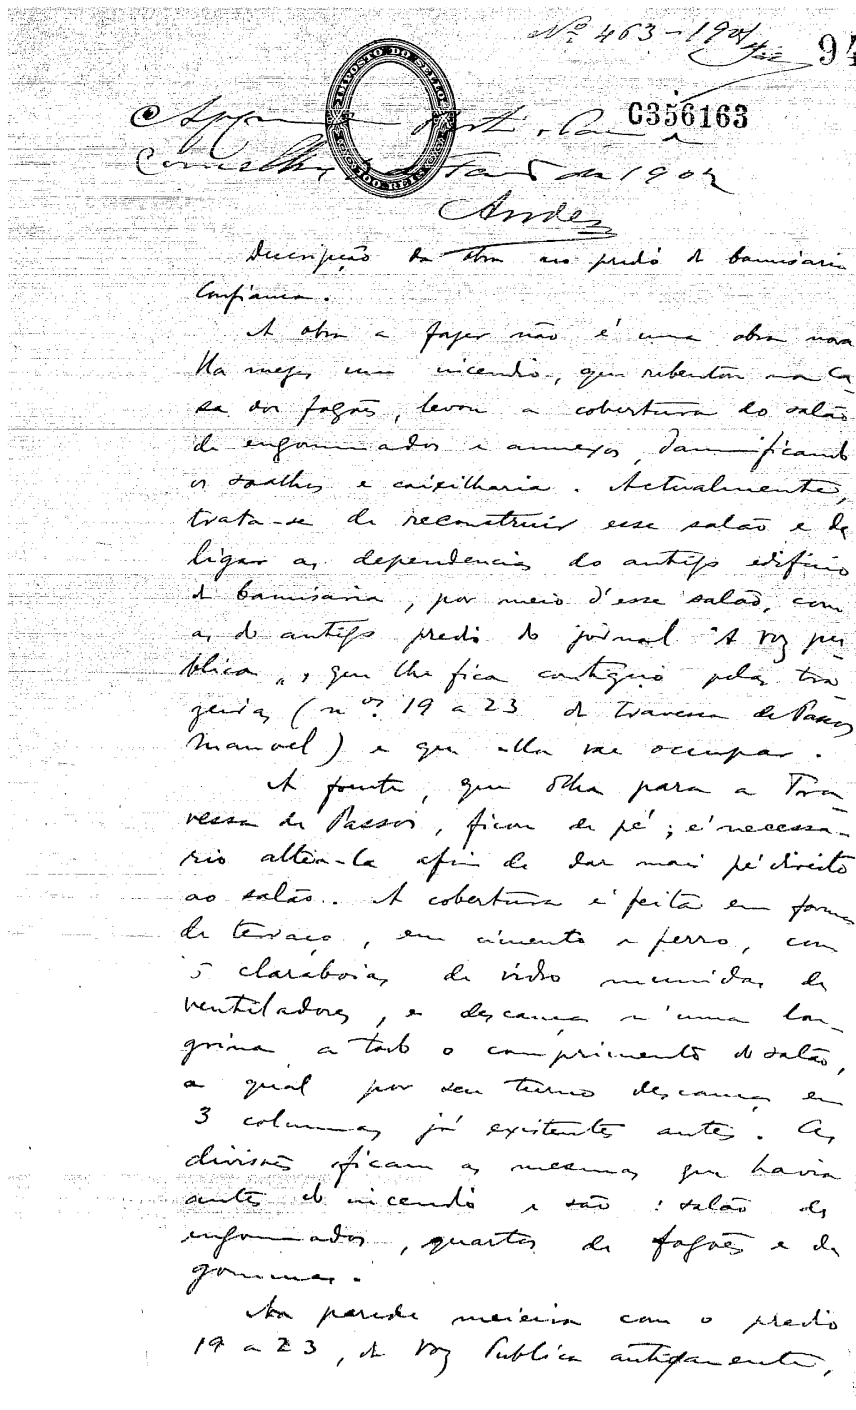 Nº 463-1901
94
IMPOSTO DO SELLO
C356163
100 REIS
Conselho, de 1902
Descripção da obra no predio da Camisaria
Confiança.
A obra a fazer não é uma obra nova
Ha mezes um incendio, que rebentou na ca-
sa dos fogões, levou a cobertura do salão
de engommados e annexos, damnificando
os soalhos e caixilharia. Actualmente,
trata-se de reconstruir esse salão e de
ligar as dependencias do antigo edificio
da Camisaria, por meio d'esse salão, com
as do antigo predio do jornal "A Voz pu-
blica", que lhe fica contiguo pelas tra-
zeiras (nos. 19 a 23 da travessa de Passos
Manoel) e que ella vae occupar.
A frente, que olha para a Tra-
vessa de Passos, ficou de pé; é necessa-
rio altea-la afim de dar mais pé direito
ao salão. A cobertura é feita em forma
de terraço, em cimento e ferro, com
5 claraboias de vidro munidas de
ventiladores, e descança n'uma lon-
grina a todo o comprimento do salão,
a qual por seu turno descança em
3 columnas já existentes antes. As
divisões ficam as mesmas que havia
antes do incendio e são: salão de
engommados, quartos de fogões e de
gommas.
Na parede meieira com o predio
19 a 23, da Voz Publica antigamente,